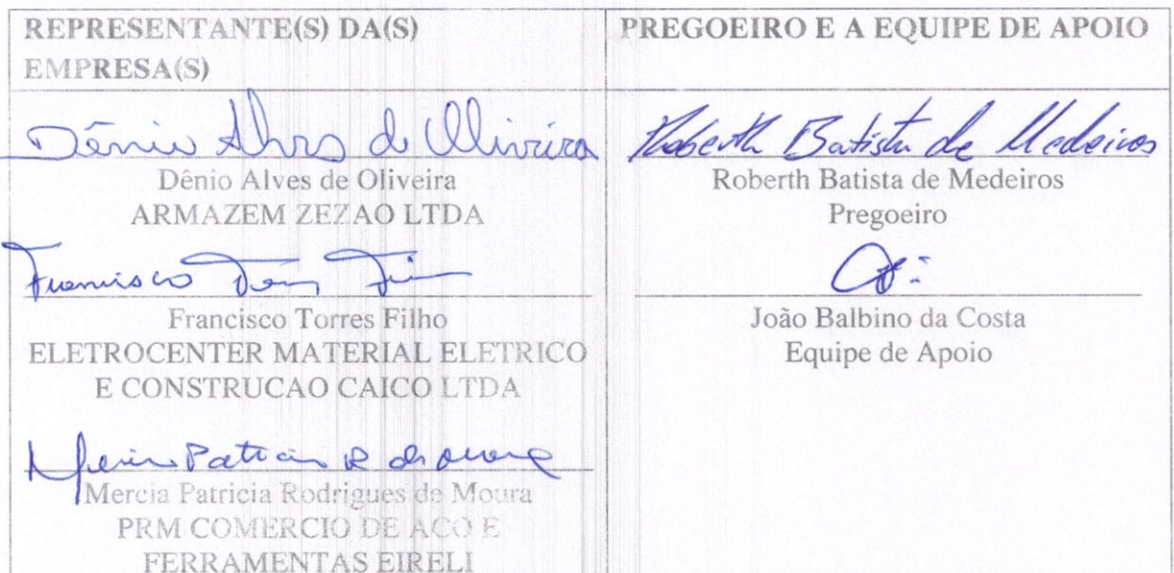 REPRESENTANTE(S) DA(S)
EMPRESA(S)
Dênio Alves de Oliveira
Dênio Alves de Oliveira
ARMAZEM ZEZAO LTDA
Francisco
Francisco Torres Filho
ELETROCENTER MATERIAL ELETRICO
E CONSTRUCAO CAICO LTDA
Patricia R de
Mercia Patricia Rodrigues de Moura
PRM COMERCIO DE ACO E
FERRAMENTAS EIRELI
PREGOEIRO E A EQUIPE DE APOIO
Roberth Batista de Medeiros
Roberth Batista de Medeiros
Pregoeiro
João Balbino da Costa
Equipe de Apoio